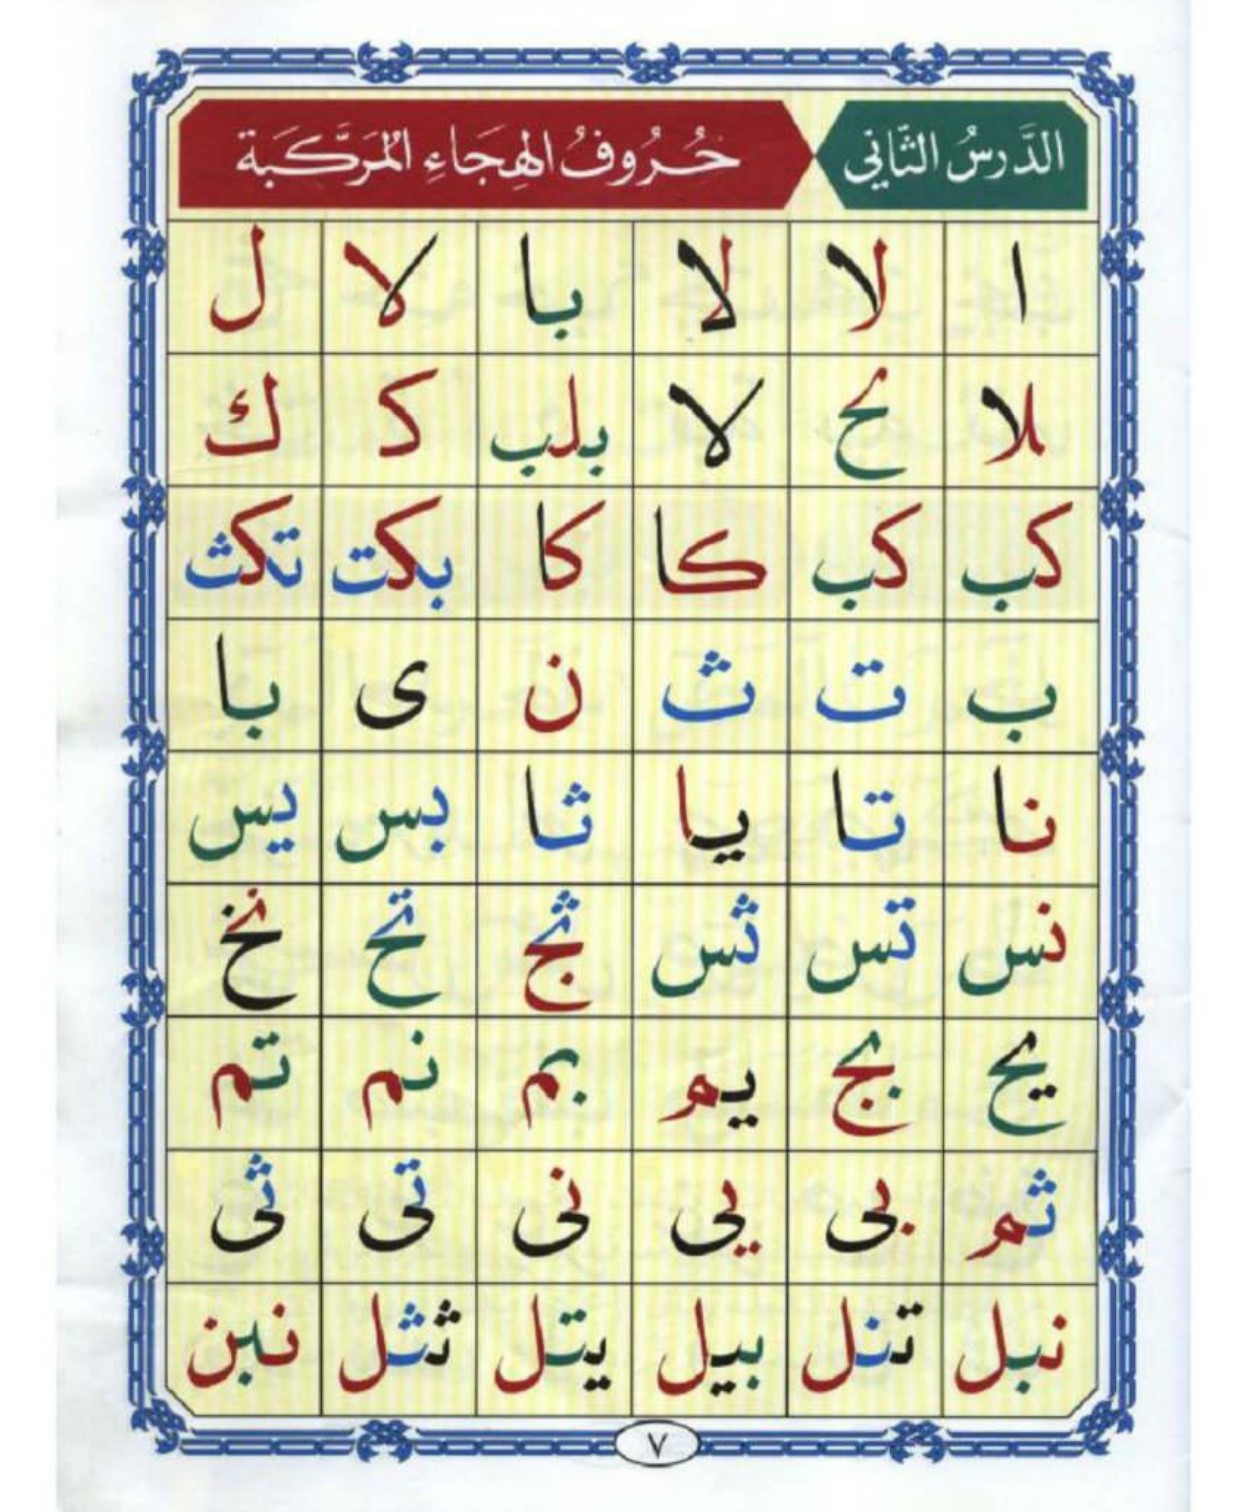 الدَّرسُ الثَّاني حُرُوفُ الهِجَاءِ المُرَكَّبَة
ا لا لا با لا ل
بلا لا بلب ك ك
كب كب كا كا بكت تكث
ب ت ث ن ى با
نا تا يا ثا بس يس
نس تس ثس ثج تح نخ
يح بج يم بم نم تم
ثم بى يى نى تى ثى
نبل تنل بيل يتل ثثل نبن
٧